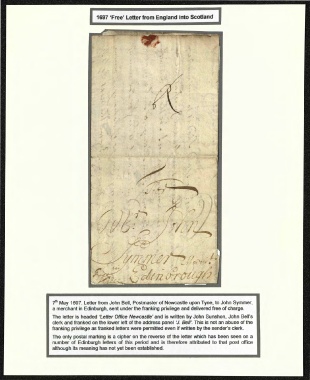 1697 'Free' Letter from England into Scotland
R
For
Mr. John
Summer
Edinbrough
7th May 1697. Letter from John Bell, Postmaster of Newcastle upon Tyne, to John Symmer,
a merchant in Edinburgh, sent under the franking privilege and delivered free of charge.
The letter is headed 'Letter Office Newcastle' and is written by John Duration, John Bell's
clerk and franked on the lower left of the address panel 'J. Bell'. This is not an abuse of the
franking privilege as franked letters were permitted even if written by the sender's clerk.
The only postal marking is a cipher on the reverse of the letter which has been seen on a
number of Edinburgh letters of this period and is therefore attributed to that post office
although its meaning has not yet been established.